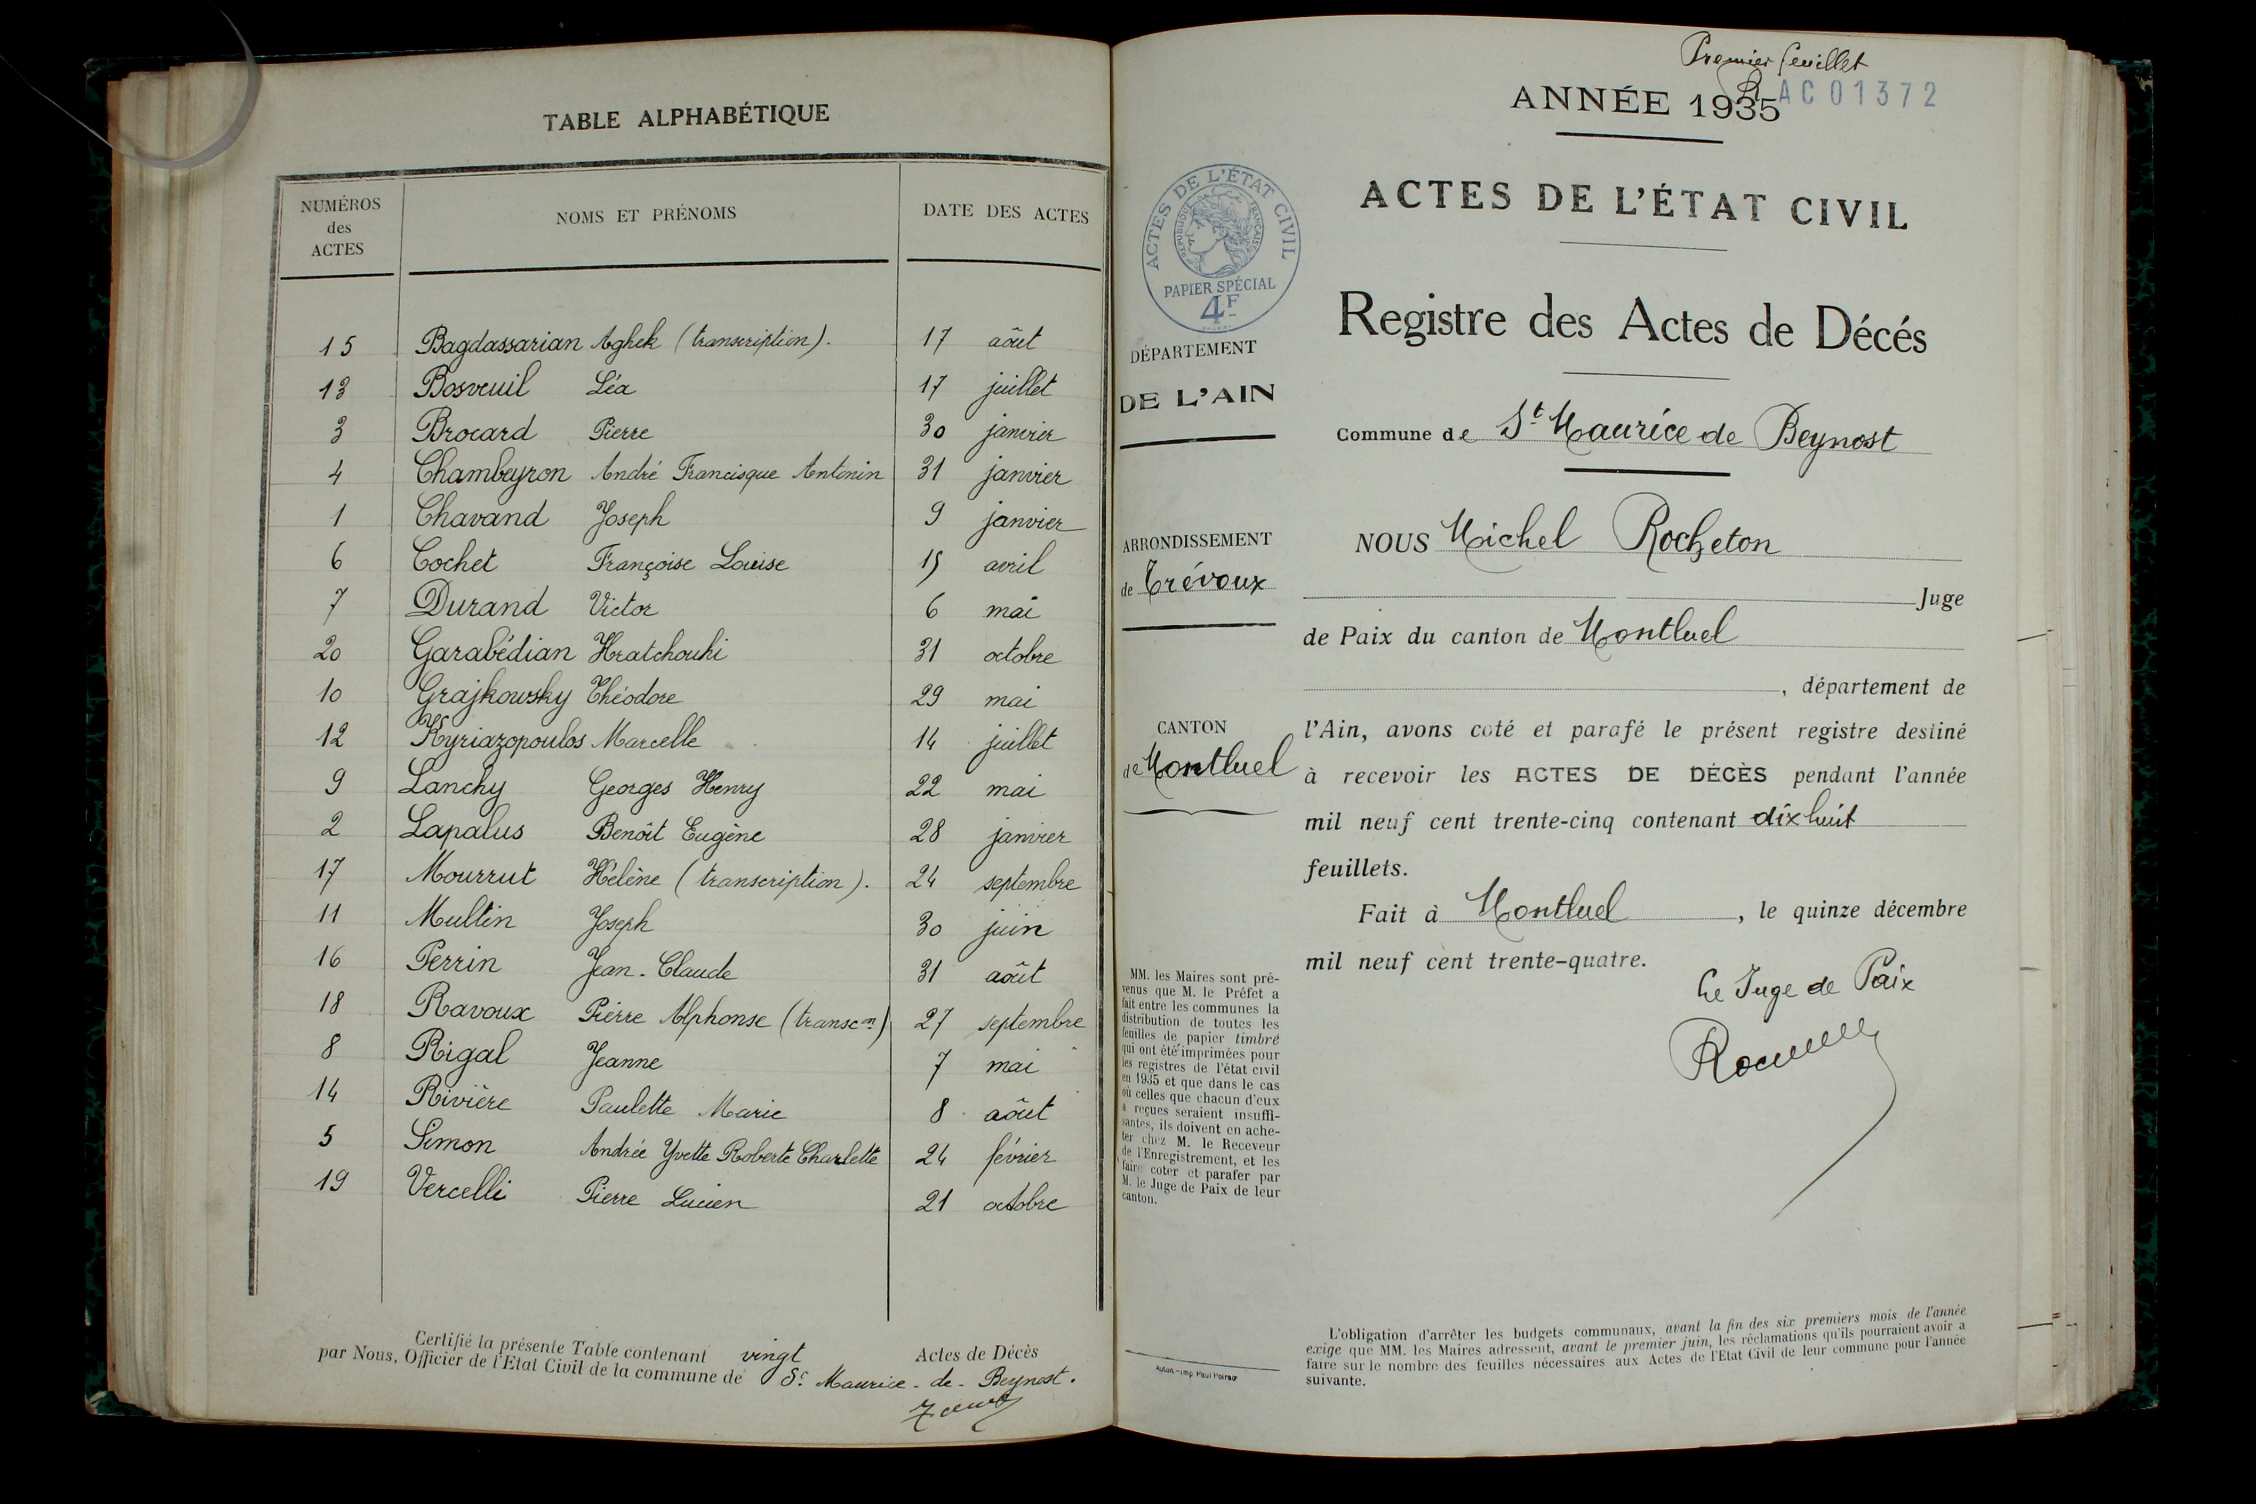 TABLE ALPHABÉTIQUE
NUMÉROS des ACTES NOMS ET PRÉNOMS DATE DES ACTES
15 Bagdassarian Aghek (transcription). 17 août
13 Bosveuil Léa 17 juillet
3 Brocard Pierre 30 janvier
4 Chambeyron André Francisque Antonin 31 janvier
1 Chavand Joseph 9 janvier
6 Cochet Françoise Louise 15 avril
7 Durand Victor 6 mai
20 Garabédian Hratchouhi 31 octobre
10 Grajkowsky Théodore 29 mai
12 Kyriazopoulos Marcelle 14 juillet
9 Lanchy Georges Henry 22 mai
2 Lapalus Benoît Eugène 28 janvier
17 Mourrut Hélène (transcription). 24 septembre
11 Multin Joseph 30 juin
16 Perrin Jean-Claude 31 août
18 Ravoux Pierre Alphonse (transcon) 27 septembre
8 Rigal Jeanne 7 mai
14 Rivière Paulette Marie 8 août
5 Simon Andrée Yvette Roberte Charlette 24 février
19 Vercelli Pierre Lucien 21 octobre
Certifié la présente Table contenant vingt Actes de Décès
par Nous, Officier de l'Etat Civil de la commune de St Maurice-de-Beynost.
Premier feuillet
R
AC01372
ANNÉE 1935
ACTES DE L'ÉTAT CIVIL
RÉPUBLIQUE FRANÇAISE
PAPIER SPÉCIAL
4F
DÉPARTEMENT
DE L'AIN
ARRONDISSEMENT
de Trévoux
CANTON
de Montluel
MM. les Maires sont pré-
venus que M. le Préfet a
fait entre les communes la
distribution de toutes les
feuilles de papier timbré
qui ont été imprimées pour
les registres de l'état civil
en 1935 et que dans le cas
où celles que chacun d'eux
a reçues seraient insuffi-
santes, ils doivent en ache-
ter chez M. le Receveur
de l'Enregistrement, et les
faire coter et parafer par
M. le Juge de Paix de leur
canton.
ACTES DE L'ÉTAT CIVIL
Registre des Actes de Décés
Commune de St Maurice de Beynost
NOUS Michel Rocheton
Juge
de Paix du canton de Montluel
, département de
l'Ain, avons coté et parafé le présent registre destiné
à recevoir les ACTES DE DÉCÈS pendant l'année
mil neuf cent trente-cinq contenant dix huit
feuillets.
Fait à Montluel, le quinze décembre
mil neuf cent trente-quatre.
Le Juge de Paix
L'obligation d'arrêter les budgets communaux, avant la fin des six premiers mois de l'année
exige que MM. les Maires adressent, avant le premier juin, les réclamations qu'ils pourraient avoir a
faire sur le nombre des feuilles nécessaires aux Actes de l'Etat Civil de leur commune pour l'année
suivante.